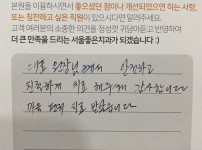 본원을 이용하시면서 좋으셨던 점이나 개선되었으면 하는 사항,
또는 칭찬하고 싶은 직원이 있으시다면 알려주세요.
고객 여러분의 소중한 의견을 정성껏 귀담아듣고 반영하여
더 큰 만족을 드리는 서울좋은치과가 되겠습니다 :)
대표 원장님께서 안전하고
친절하게 치료 해주셔서 감사합니다
치료 받았습니다